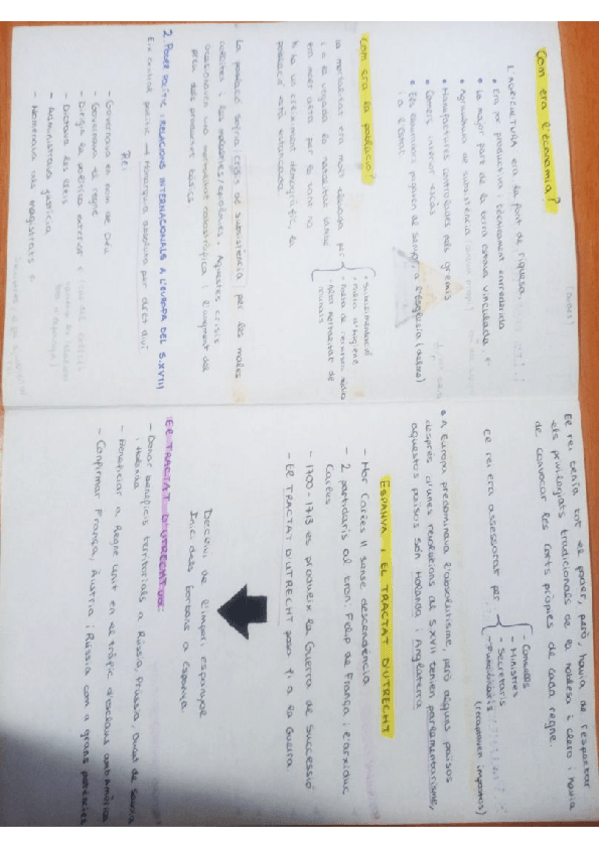 Com era l'economia?
L'AGRICULTURA era la font de riquesa.
• Era poc productiva i tècnicament endarrerida
• La major part de la terra estava vinculada
• Agricultura de subsistència
• Manufactures controlades pels gremis
• Comerç interior escàs
• Els camperols pagaven al senyor, a l'església (delme) i a l'Estat.
Com era la població?
la mortalitat era molt elevada per
i a la vegada la natalitat també
era molt alta per la qual no
hi ha un creixement demogràfic, la
població està estancada
• subalimentació
• falta d'higiene
• falta de recursos
• Alta mortalitat de
nounats
La població sofria crisis de subsistència per les males
collites i les malalties/epidèmies. Aquestes crisis
ocasionaven una mortalitat catastròfica i l'augment del
preu dels productes bàsics
2. PODER POLÍTIC I RELACIONS INTERNACIONALS A L'EUROPA DEL S.XVIII
Eix central polític → Monarquia absoluta per dret diví
Rei
- Governava en nom de Déu
- Governava el regne
- Dirigia la política exterior
- Dictava lleis
- Administrava justícia
- Nomenava als magistrats
El rei tenia tot el poder, però, havia de respectar
els privilegiats tradicionals de la noblesa i clero i havia
de convocar les corts pròpies de cada regne.
El rei era assessorat per
- Consells
- Ministres
- Secretaris
(recaptaven impostos)
A Europa predominava l'absolutisme, però alguns països
després d'unes revolucions al S.XVII tenien parlamentarisme,
aquestos països són Holanda i Anglaterra
ESPANYA I EL TRACTAT D'UTRECHT
- Mor Carles II sense descendència
- 2 partidaris al tron: Felip de França i l'arxiduc
Carles
- 1700-1713 es produeix la Guerra de Successió
- EL TRACTAT D'UTRECHT posa fi a la Guerra.
Declivi de l'imperi espanyol
Inici dels Borbons a Espanya.
EL TRACTAT D'UTRECHT va:
- Donar beneficis territorials a Rússia, Prússia, Ducat de Savoia
i Holanda
- Beneficiar a Regne Unit en el tràfic d'esclaus amb Amèrica
- Confirmar França, Àustria i Rússia com a grans potències